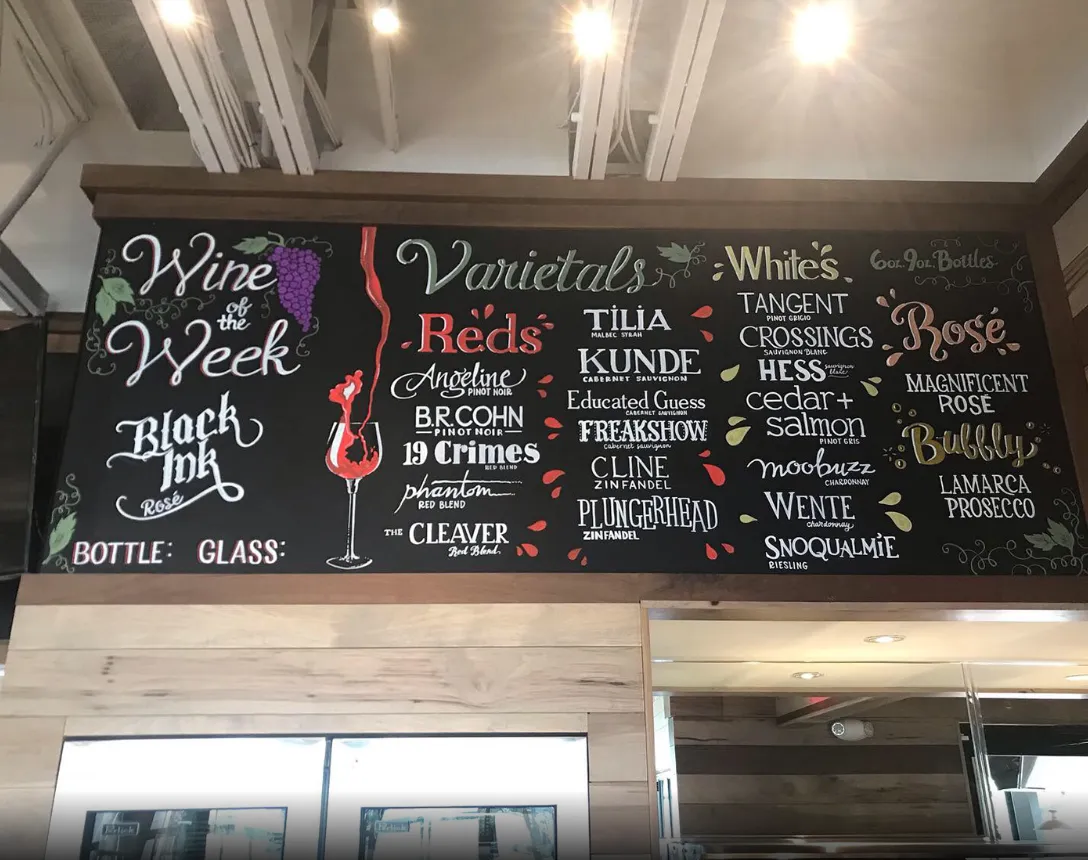 Wine
of
the
Week
Black
Ink
Rosé
BOTTLE: GLASS:
Varietals
Reds
Angeline
PINOT NOIR
B.R.COHN
PINOT NOIR
19 Crimes
RED BLEND
phantom
RED BLEND
THE CLEAVER
Red Blend
TILIA
MALBEC SYRAH
KUNDE
CABERNET SAUVIGNON
Educated Guess
CABERNET SAUVIGNON
FREAKSHOW
Cabernet Sauvignon
CLINE
ZINFANDEL
PLUNGERHEAD
ZINFANDEL
White's
TANGENT
PINOT GRIGIO
CROSSINGS
SAUVIGNON BLANC
HESS sauvignon
blanc
cedar+
salmon
PINOT GRIS
moobuzz
CHARDONNAY
WENTE
chardonnay
SNOQUALMIE
RIESLING
6oz. 9oz. Bottles
Rosé
MAGNIFICENT
ROSÉ
Bubbly
LAMARCA
PROSECCO